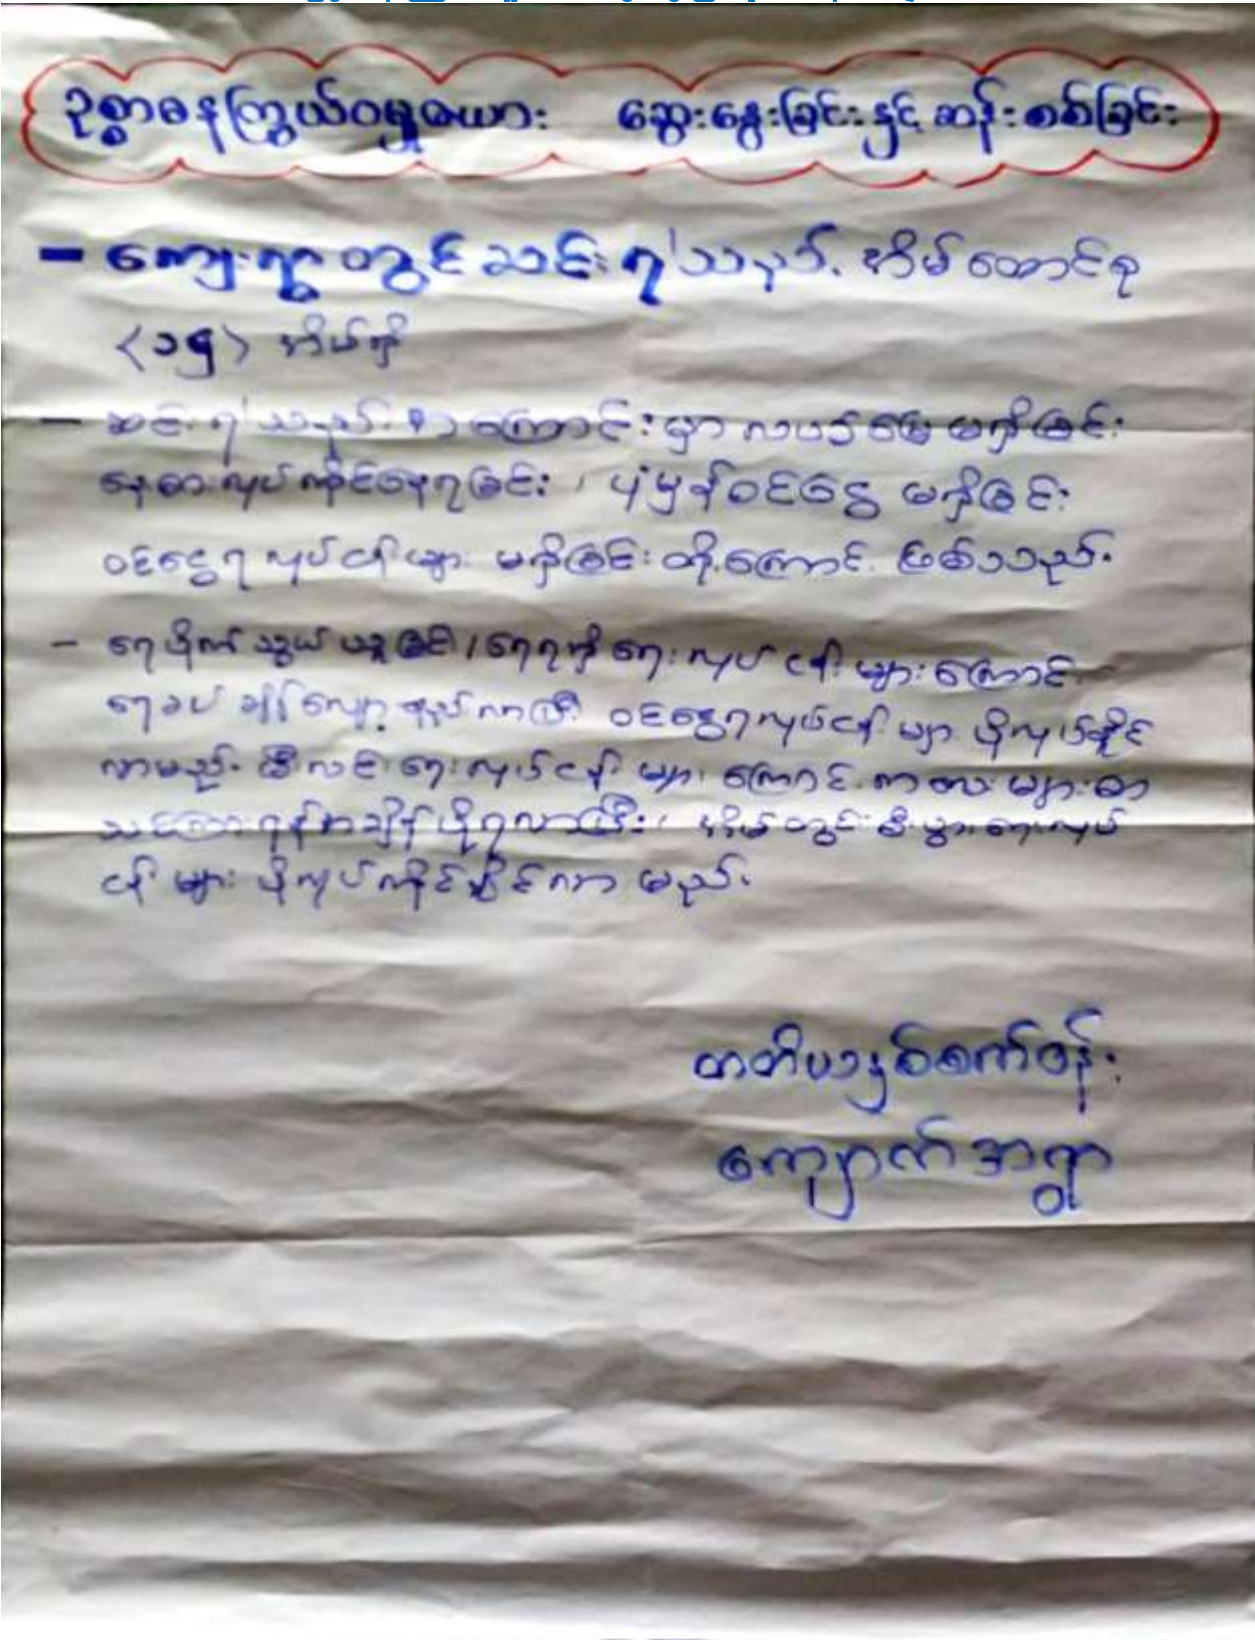 ဥစ္စာဓနကြွယ်ဝမှုဇယား ဆွေးနွေးခြင်းနှင့် ဆန်းစစ်ခြင်း
- ကျေးရွာတွင် ဆင်းရဲသည့် အိမ်ထောင်စု
<၁၅> အိမ်ရှိ
- ဆင်းရဲသည့် အကြောင်းမှာ လယ်မြေ မရှိခြင်း
နေ့စားလုပ်ကိုင်နေရခြင်း၊ ပုံမှန်ဝင်ငွေ မရှိခြင်း
ဝင်ငွေရ လုပ်ငန်းများ မရှိခြင်းတို့ကြောင့် ဖြစ်သည်။
- ရေပိုက်သွယ်ယူခြင်း၊ ရေရရှိရေးလုပ်ငန်းများကြောင့်
ရေခပ်ချိန်လျော့နည်းလာပြီး ဝင်ငွေရလုပ်ငန်းများ ပိုလုပ်နိုင်
လာမည်။ မီးလင်းရေးလုပ်ငန်းများကြောင့် ကလေးများစာ
သင်ကြားရန်အချိန်ပိုရလာပြီး၊ အိမ်တွင်းစီးပွားရေးလုပ်
ငန်းများ ပိုလုပ်ကိုင်နိုင်လာမည်။
တတိယနှစ်စက်ဝန်း
ကျောက် ရွာ